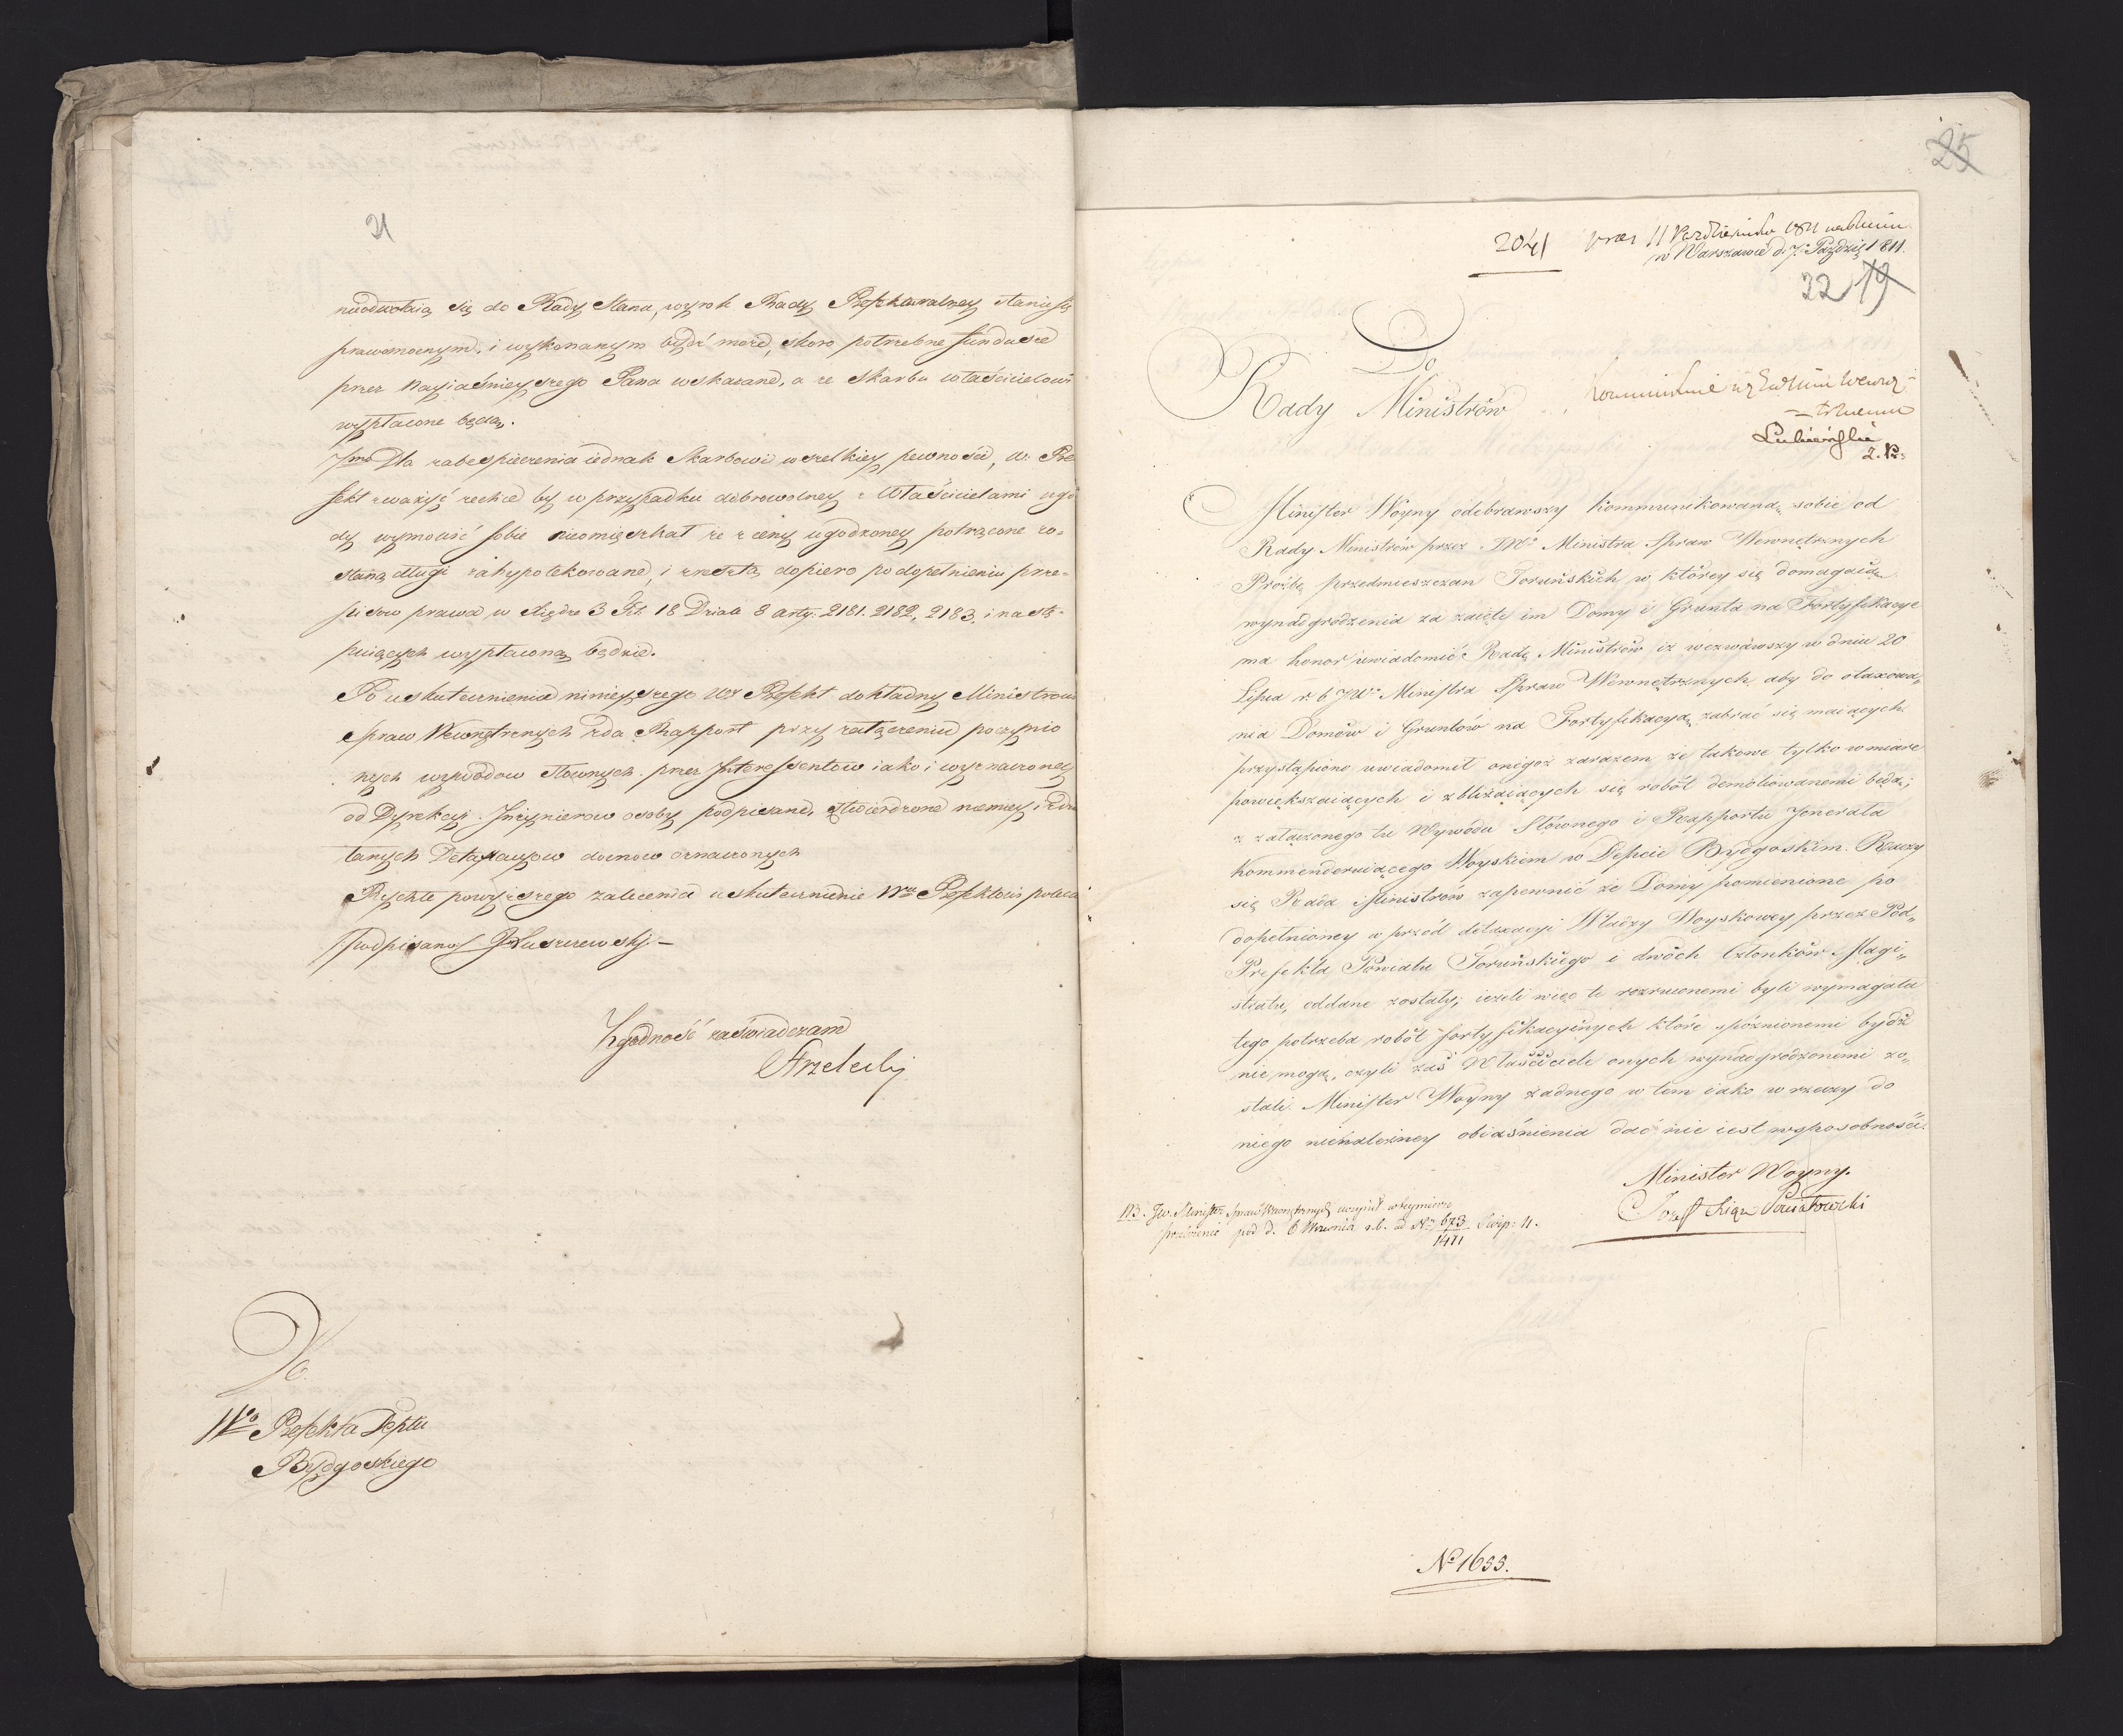 21
nieodwołaią się do Rady Stanu, wyrok Rady Prefekturalney stanie się
prawomocnym, i wykonanym bydź może, skoro potrzebne fundusze
przez Nayiaśnieyszego Pana wskazane, a ze Skarbu właścicielowi
wypłacone będą.
7mo Dla zabespieczenia iednak Skarbowi wszelkiey pewności, W. Pre
fekt zważyć zechce by w przypadku dobrowolney z Właścicielami ugo
dy wymówić sobie nieomięszkał że z ceny ugodzoney potrącone zo-
staną długi zahypotekowane, i reszta dopiero po dopełnieniu prze-
pisow prawa w Xiędze 3 Tit. 18 Dziale 8 arty: 2181. 2182, 2183, i nastę-
puiących wypłaconą będzie.
Po uskutecznieniu ninieyszego Wy Prefekt dokładny Ministrowi
Spraw Wewnętrznych zda Rapport przy załączeniu poczynio
nych wywodow słownych przez Interessentow iako i wyznaczoney
od Dyrekcyi Inzynierow osoby podpisane, stwierdzone niemiey i
tanych Detaxacyow domow oznaczonych
Rychłe powyższego zalecenia uskutecznienie Wmu Prefektowi poleca
/podpisano/ JŁuszczewski –
Zgodność zaświadczam
Strzelecki
Do
Wo Prefekta Deptu
Bydgoskiego
25
2041 prez 11 Października 1811
w Warszawie d. 7. Paździe 1811.
22 19
Do
Rady Ministrów
Lubieński
2. Pr.
Minister Woyny odebrawszy kommunikowaną sobie od
Rady Ministrów przez JWo Ministra Spraw Wewnętrznych
Prośbę przedmieszczan Toruńskich w którey się domagaią
wynadgrodzenia za zaięte im Domy i Grunta na Fortyfikacye
ma honor uwiadomić Radę Ministrów iż wezwawszy w dniu 20
Lipca r. b JWo Ministra Spraw Wewnętrznych aby do otaxowa„
nia Domów i Gruntów na Fortyfikacyą zabrać się maiących
przystąpiono uwiadomił onegoż zarazem że takowe tylko w miarę
powiększaiących i zbliżaiących się robót demoliowanemi będą;
z załączonego tu Wywodu Słównego i Rapportu Jenerała
Kommenderuiącego Woyskiem w Depcie Bydgoskim. Raczy
się Rada Ministrów zapewnić że Domy pomienione po
dopełnioney w przód detaxacyi Władzy Woyskowey przez Pod„
Prefekta Powiatu Toruńskiego i dwóch Członków Magi„
stratu, oddane zostały; ieżeli więc te rozrzuconemi byli wymagała
tego potrzeba robót fortyfikacyinych które spóźnionemi bydź
nie mogą, czyli zaś Właściciele onych wynadgrodzonemi zo„
stali. Minister Woyny żadnego w tem iako w rzeczy do
niego nienależney obiaśnienia dać nie iest w sposobności.
Minister Woyny.
Józef Xiąże Poniatowski
NB. Jw. Minister Spraw Wewnętrznych uczynił w tey mierze
przełożenie pod d. 6 Września r.b. ad No 673/1411
No 1655.